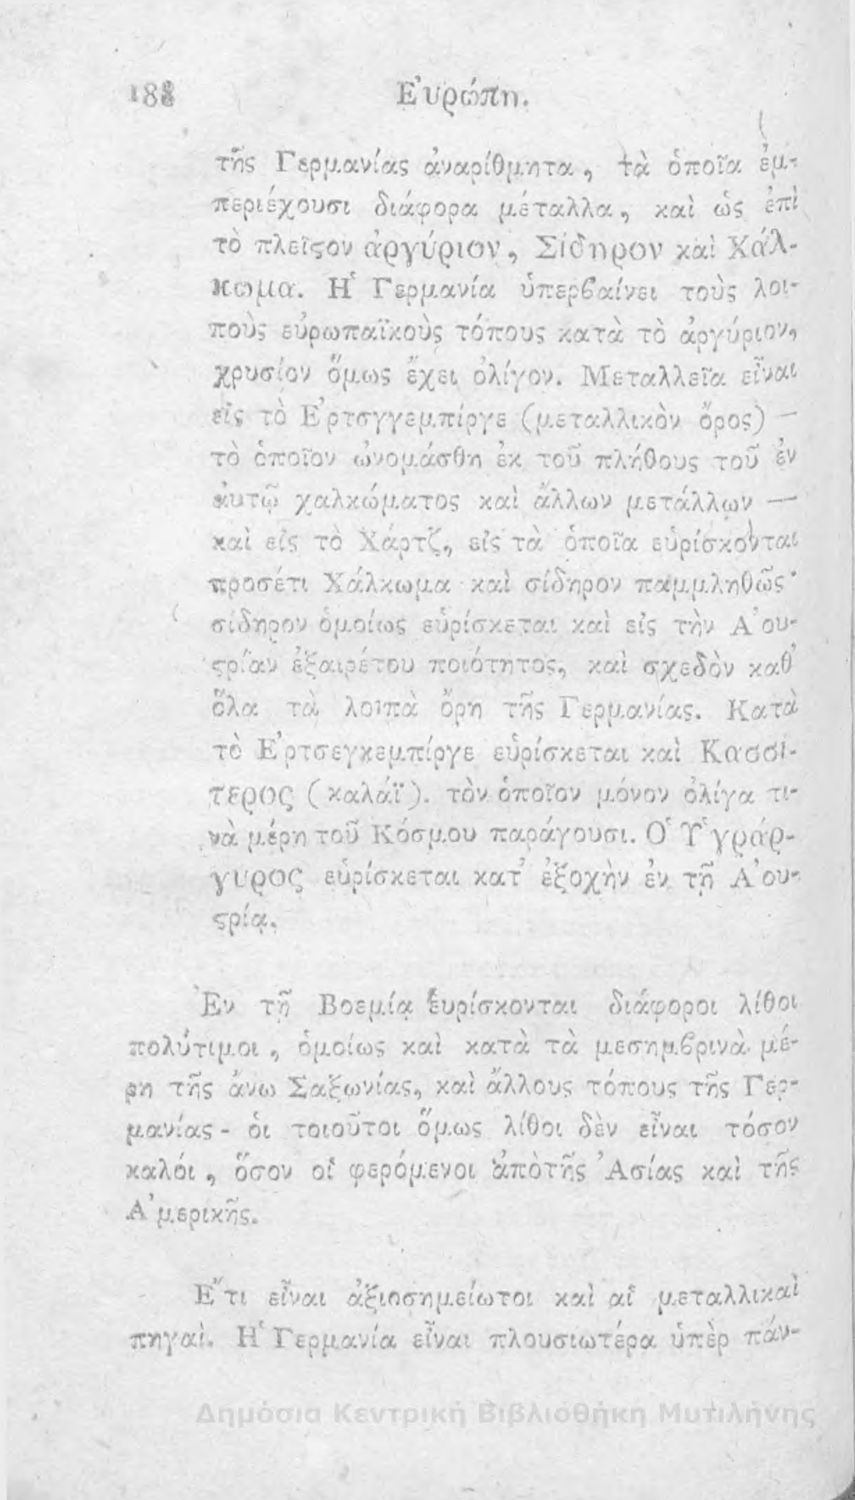 188 Εὐρώπη.
τῆς Γερμανίας ἀναρίθμητα, τὰ ὁποῖα ἐμ-
περιέχουσι διάφορα μέταλλα, καὶ ὡς ἐπὶ
τὸ πλεῖςον ἀργύριον, Σίδηρον καὶ Χάλ-
κωμα. Ἡ Γερμανία ὑπερβαίνει τοὺς λοι-
ποὺς εὐρωπαϊκοὺς τόπους κατὰ τὸ ἀργύριον,
χρυσίον ὅμως ἔχει ὀλίγον. Μεταλλεῖα εἶναι
εἰς τὸ Ἐρτσγγεμπίργε (μεταλλικὸν ὄρος) —
τὸ ὁποῖον ὠνομάσθη ἐκ τοῦ πλήθους τοῦ ἐν
αὐτῷ χαλκώματος καὶ ἄλλων μετάλλων —
καὶ εἰς τὸ Χάρτζ, εἰς τὰ ὁποῖα εὑρίσκονται
προσέτι Χάλκωμα καὶ σίδηρον παμμληθῶς·
σίδηρον ὁμοίως εὑρίσκεται καὶ εἰς τὴν Ἀου-
ςρίαν ἐξαιρέτου ποιότητος, καὶ σχεδὸν καθ'
ὅλα τὰ λοιπὰ ὄρη τῆς Γερμανίας. Κατὰ
τὸ Ἐρτσεγκεμπίργε εὑρίσκεται καὶ Κασσί-
τερος (καλάϊ). τὸν ὁποῖον μόνον ὀλίγα τι-
νὰ μέρη τοῦ Κόσμου παράγουσι. Ὁ Ὑγράρ-
γυρος εὑρίσκεται κατ' ἐξοχὴν ἐν τῇ Ἀου-
ςρίᾳ.
Ἐν τῇ Βοεμίᾳ ἑυρίσκονται διάφοροι λίθοι
πολύτιμοι, ὁμοίως καὶ κατὰ τὰ μεσημβρινὰ μέ-
ρη τῆς ἄνω Σαξωνίας, καὶ ἄλλους τόπους τῆς Γερ-
μανίας - ὁι τοιοῦτοι ὅμως λίθοι δὲν εἶναι τόσον
καλόι, ὅσον οἱ φερόμενοι ἀπὸτῆς Ἀσίας καὶ τῆς
Ἀμερικῆς.
Ἔτι εἶναι ἀξιοσημείωτοι καὶ αἱ μεταλλικαὶ
πηγαὶ. Ἡ Γερμανία εἶναι πλουσιωτέρα ὑπὲρ πάν-
Δημόσια Κεντρική Βιβλιοθήκη Μυτιλήνης